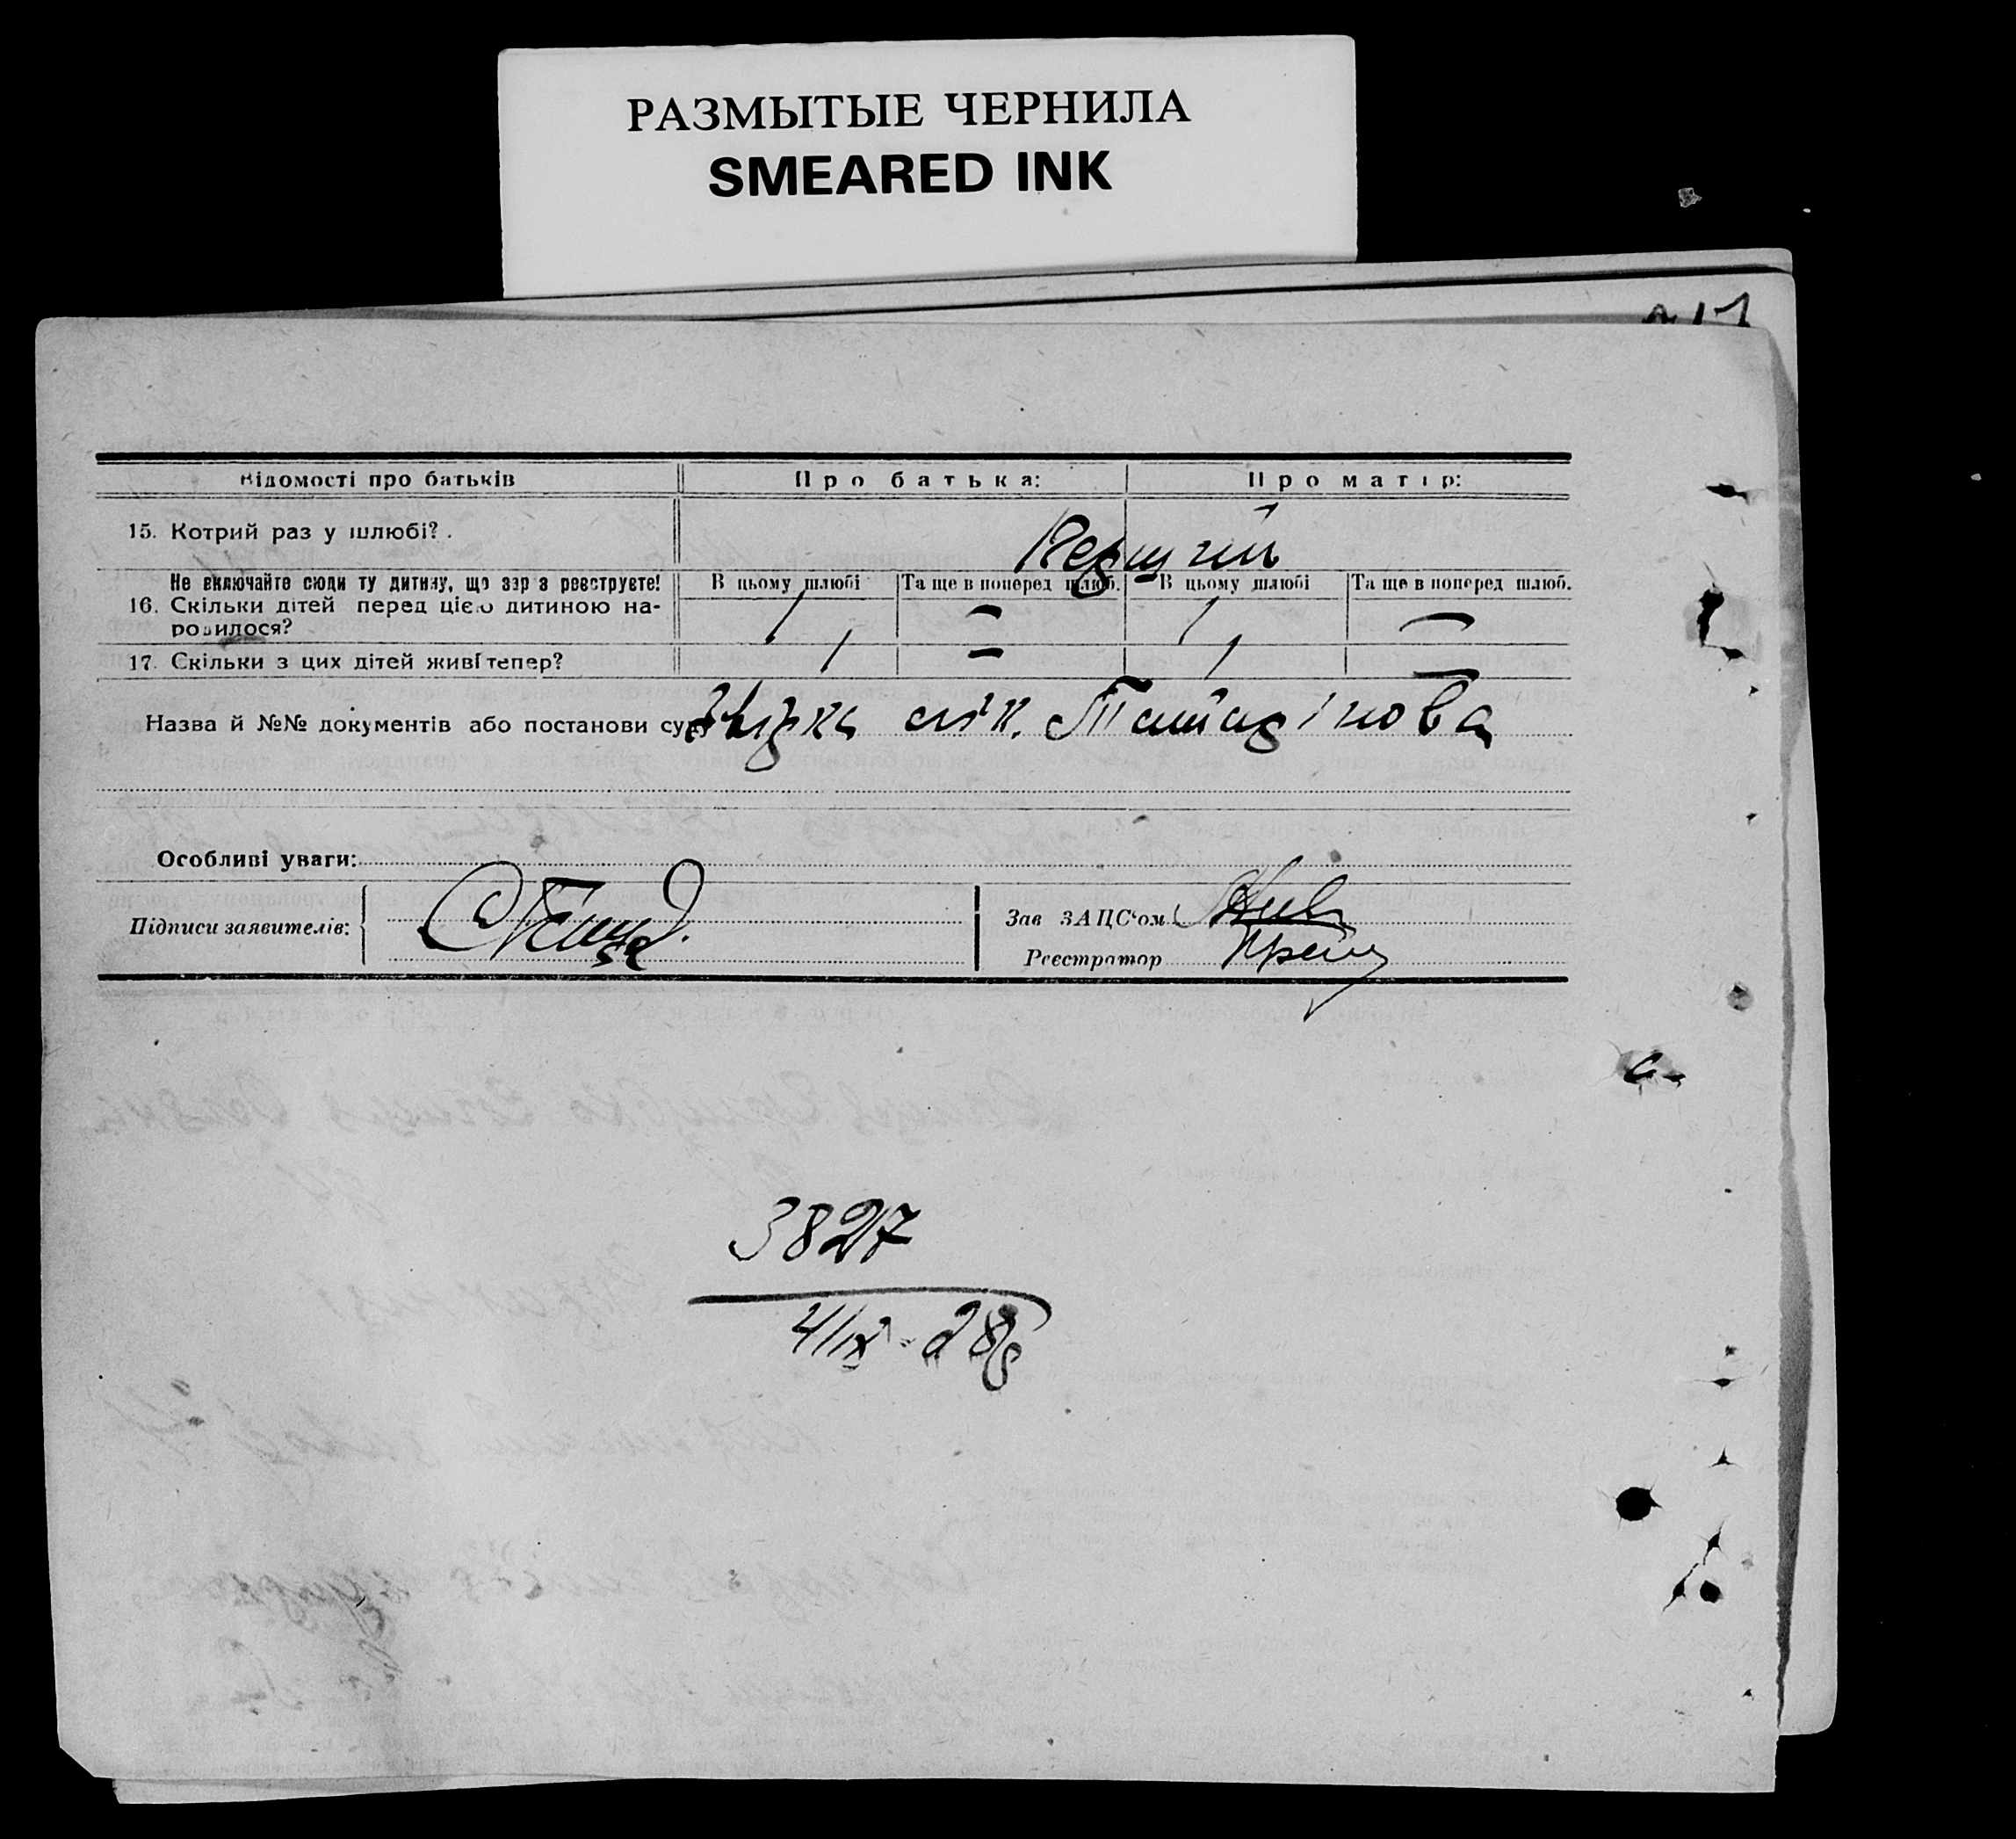 РАЗМЫТЫЕ ЧЕРНИЛА
SMEARED INK
Відомості про батьків Про батька: Про матір:
15. Котрий раз у шлюбі? . Перший
Не включайте сюди ту дитину, що зараз реєструєте! В цьому шлюбі Та ще в поперед шлюб. В цьому шлюбі Та ще в поперед шлюб.
16. Скільки дітей перед цією дитиною на-
родилося? 1 — 1 —
17. Скільки з цих дітей живі тепер? 1 — 1 —
Назва й №№ документів або постанови суду
Особливі уваги:
Підписи заявителів: Зав ЗАЦС'ом
Реєстратор
3827
4/IX - 28